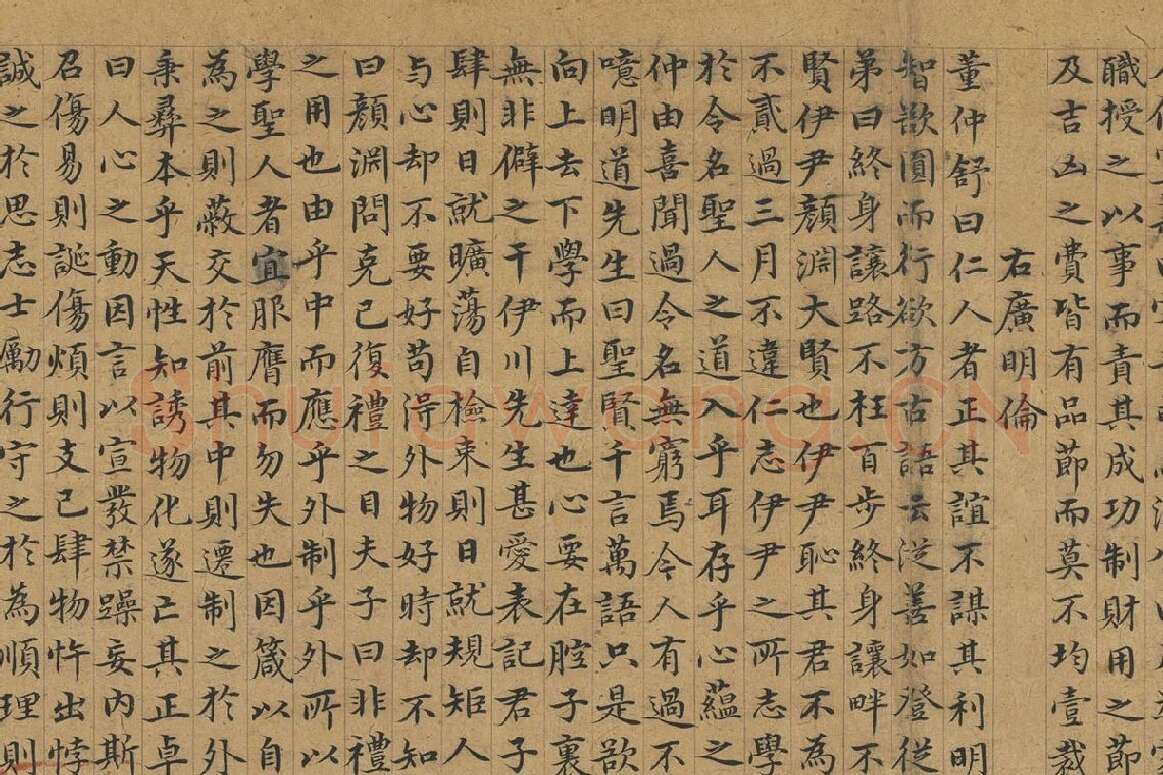 職授之以事而責其成功制財用之節
及吉凶之費皆有品節而莫不均壹裁
右廣明倫
董仲舒曰仁人者正其誼不謀其利明
智欲圓而行欲方古語云從善如登從
弟曰終身讓路不枉百步終身讓畔不
賢伊尹顏淵大賢也伊尹恥其君不為
不貳過三月不違仁志伊尹之所志學
於令名聖人之道入乎耳存乎心蘊之
仲由喜聞過令名無窮焉今人有過不
噫明道先生曰聖賢千言萬語只是欲
向上去下學而上達也心要在腔子裏
無非僻之干伊川先生甚愛表記君子
肆則日就曠蕩自檢束則日就規矩人
与心却不要好苟得外物好時却不知
曰顏淵問克己復禮之目夫子曰非禮
之用也由乎中而應乎外制乎外所以
學聖人者宜服膺而勿失也因箴以自
為之則蔽交於前其中則遷制之於外
秉彞本乎天性知誘物化遂亡其正卓
曰人心之動因言以宣發禁躁妄內斯
召傷易則誕傷煩則支己肆物忤出悖
誠之於思志士勵行守之於為順理則
Shufawang.CN